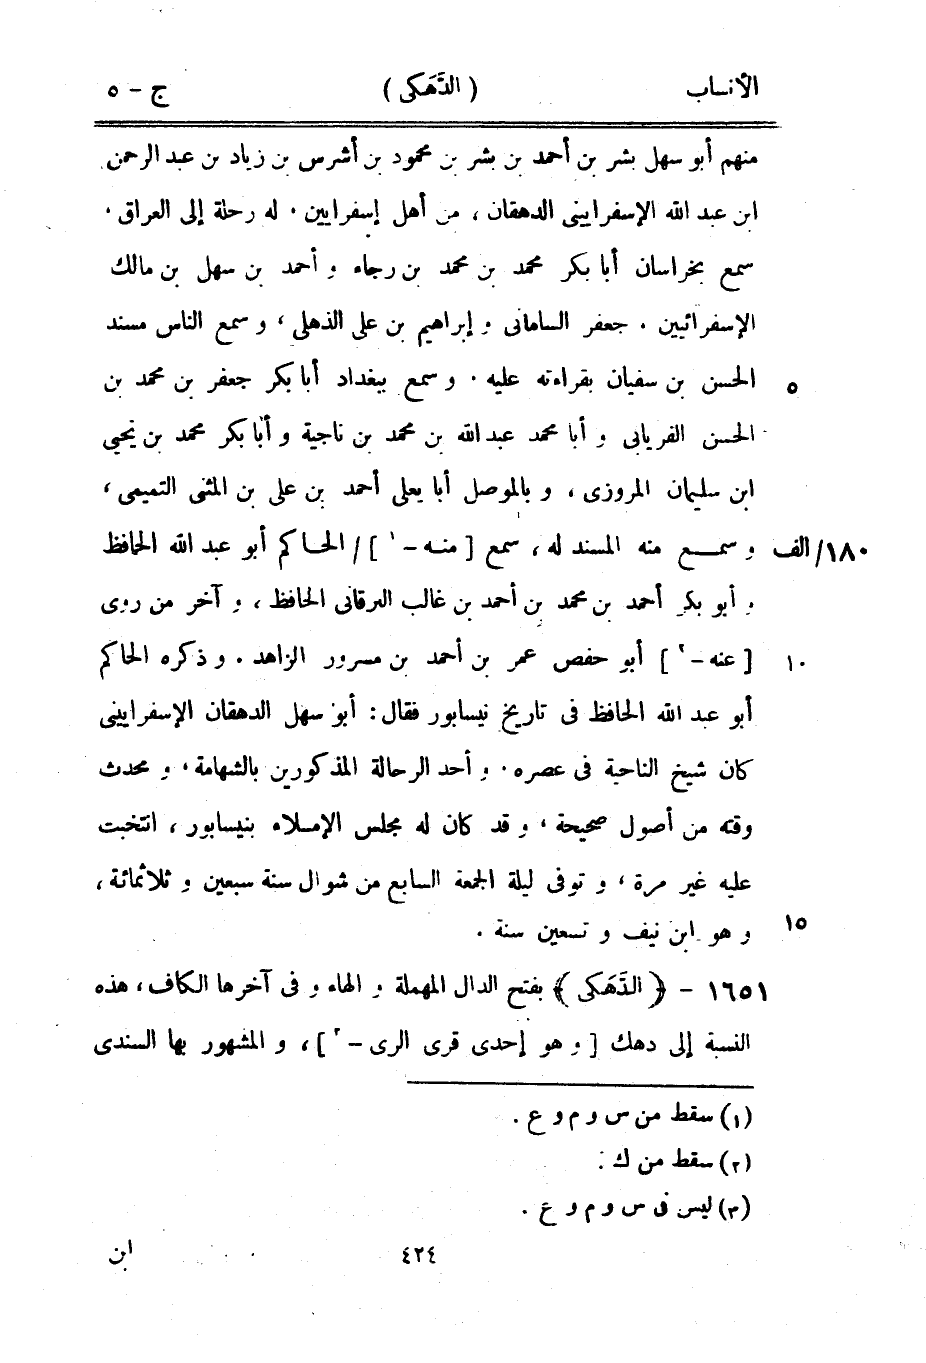 الأنساب ( الدَّهَكى ) ج - ٥
منهم أبو سهل بشر بن أحمد بن بشر بن محمود بن أشرس بن زياد بن عبد الرحمن
ابن عبد الله الإسفراينى الدهقان ، من أهل إسفرايين ، له رحلة إلى العراق ،
سمع بخراسان أبا بكر محمد بن محمد بن رجاء و أحمد بن سهل بن مالك
الإسفرائيين . جعفر السامانى و إبراهيم بن على الذهلى ، و سمع الناس مسند
الحسن بن سفيان بقراءته عليه ، و سمع ببغداد أبا بكر جعفر بن محمد بن ٥
الحسن الفريابى و أبا محمد عبد الله بن محمد بن ناجية و أبا بكر محمد بن يحيى
ابن سليمان المروزى ، و بالموصل أبا يعلى أحمد بن على بن المثنى التميمى ،
١٨٠/ الف و سمع منه المسند له ، سمع [ منه - ١ ] / الحاكم أبو عبد الله الحافظ
و أبو بكر أحمد بن محمد بن أحمد بن غالب البرقانى الحافظ ، و آخر من روى
[ عنه - ٢ ] أبو حفص عمر بن أحمد بن مسرور الزاهد . و ذكره الحاكم ١٠
أبو عبد الله الحافظ فى تاريخ نيسابور فقال : أبو سهل الدهقان الإسفراينى
كان شيخ الناحية فى عصره ، و أحد الرحالة المذكورين بالشهامة ، و محدث
وقته من أصول صحيحة ، و قد كان له مجلس الإملاء بنيسابور ، انتخبت
عليه غير مرة ، و توفى ليلة الجمعة السابع من شوال سنة سبعين و ثلاثمائة ،
و هو ابن نيف و تسعين سنة . ١٥
١٦٥١ - ﴿ الدَّهَكى ﴾ بفتح الدال المهملة و الهاء و فى آخرها الكاف ، هذه
النسبة إلى دهك [ و هو إحدى قرى الرى - ٣ ] ، و المشهور بها السندى
(١) سقط من س و م و ع .
(٢) سقط من ك :
(٣) ليس فى س و م و ع .
٤٢٤ ابن